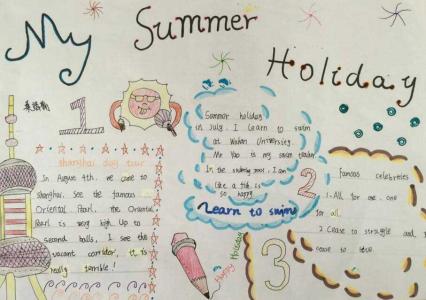 My Summer Holiday
1
shanghai day tour
In August 4th, we come to
shanghai. See the famous
Oriental Pearl, the Oriental
Pearl is very high. Up to
second balls, I see the
vacant corridor, it is
really terrible!
Summer holiday
in July. I learn to swim
at Wuhan University.
Mr Yao is my swim teacher
In the swimming pool, I am
like a fish is
so happy
Learn to swim
Happy
Holiday
2
famous celebrates
1. All for one, one
for all.
2. Cease to struggle and
cease to live.
3